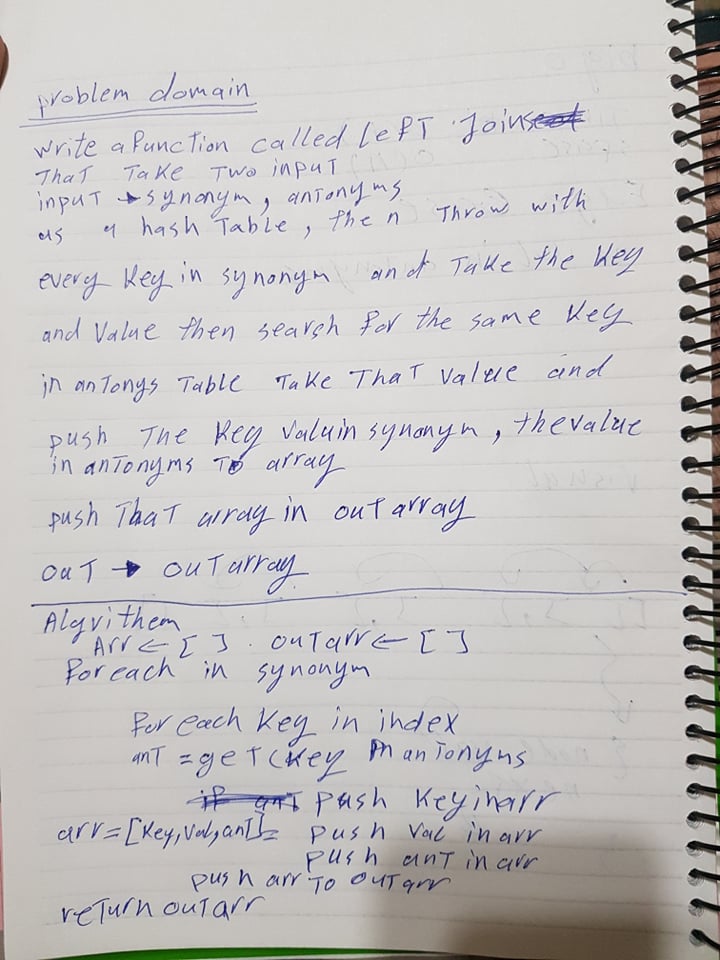 problem domain
write a function called Left Join
That Take Two input
input → synonym, antonyms
as a hash Table, then Throw with
every Key in synonym and Take the Key
and Value then search for the same Key
in anTonys Table Take That value and
push The Key valuin synonym, the value
in anTonyms To array
push That array in out array
ouT → ouT array
Algvrithem
Arr ← [ ] . outarr ← [ ]
for each in synonym
for each Key in index
anT = geT (Key in anTonyms
push Key in arr
arr = [Key, Val, anT] = push val in arr
push anT in arr
push arr To outarr
reTurn outarr